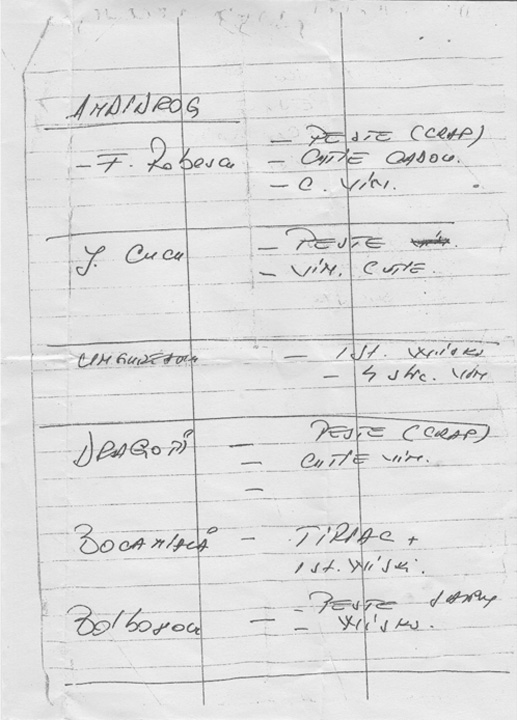 AMDIDROG
- F. Robescu
- PESTE (CRAP)
- CUTIE CADOU.
- C. VIN.
J. Cucu
- PESTE
- VIN. CUTIE.
UNGUREANU
- 1 st. Wiisky
- 4 stic. VIN
DRAGOTĂ
- PESTE (CRAP)
- CUTIE VIN.
-
BOCAMIACĂ -
TIRIAC +
1 st. Wiiski.
Bolbosou
- PESTE
- Wiisky.